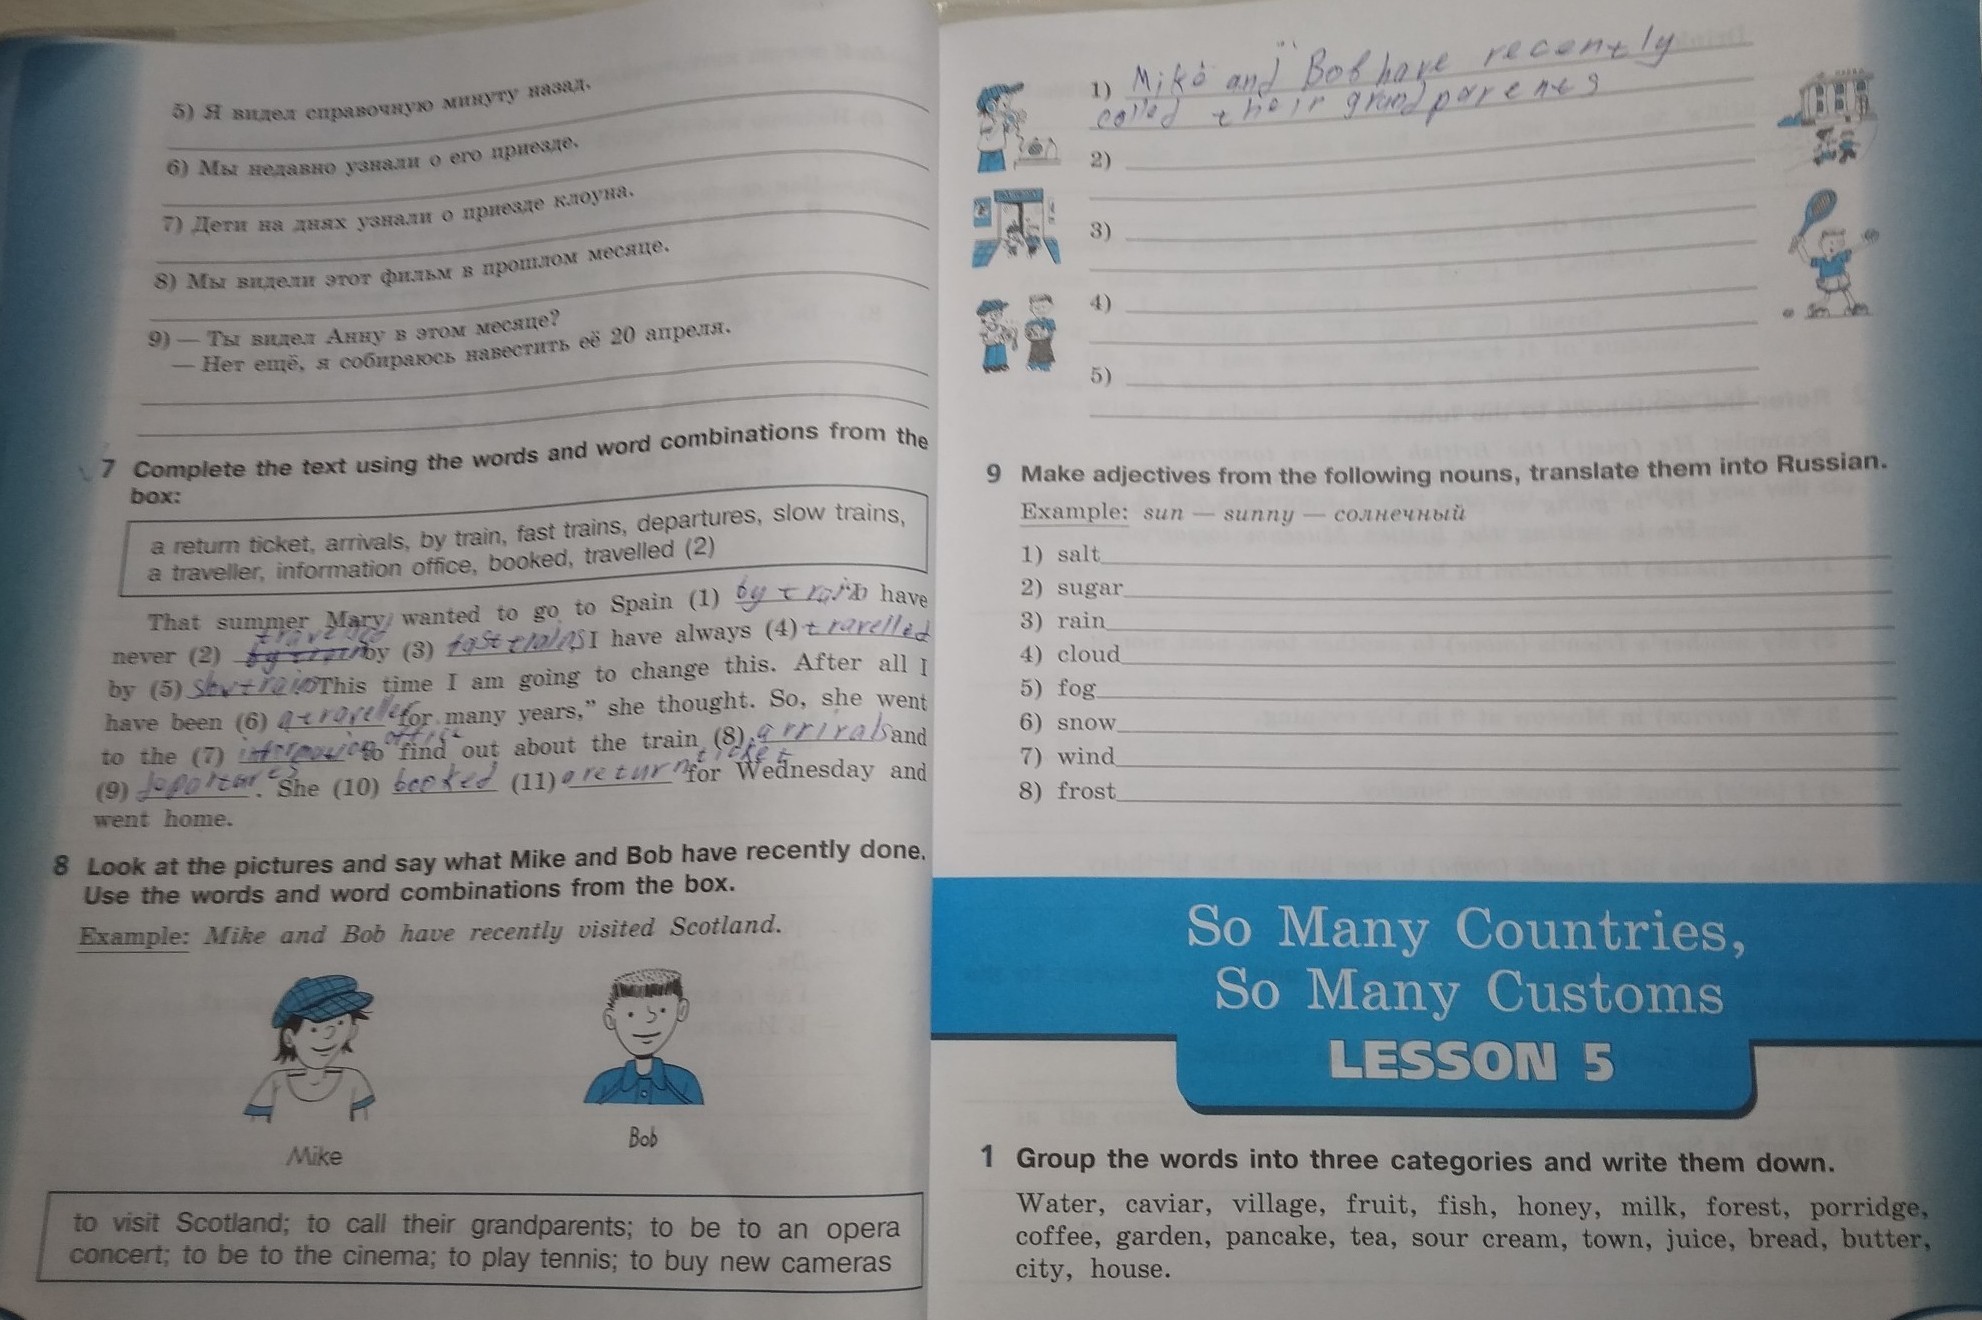 5) Я видел справочную минуту назад.
6) Мы недавно узнали о его приезде.
7) Дети на днях узнали о приезде клоуна.
8) Мы видели этот фильм в прошлом месяце.
9) — Ты видел Анну в этом месяце?
— Нет ещё, я собираюсь навестить её 20 апреля.
7 Complete the text using the words and word combinations from the
box:
a return ticket, arrivals, by train, fast trains, departures, slow trains,
a traveller, information office, booked, travelled (2)
That summer Mary wanted to go to Spain (1) by train I have
never (2) travelled by (3) fast trains I have always (4) travelled
by (5) This time I am going to change this. After all I
have been (6) a traveller for many years,” she thought. So, she went
to the (7) information office to find out about the train (8) arrivals and
(9) departures. She (10) booked (11) a return ticket for Wednesday and
went home.
8 Look at the pictures and say what Mike and Bob have recently done.
Use the words and word combinations from the box.
Example: Mike and Bob have recently visited Scotland.
Mike
Bob
to visit Scotland; to call their grandparents; to be to an opera
concert; to be to the cinema; to play tennis; to buy new cameras
1) Mike and Bob have recently
called their grandparents
2)
3)
4)
5)
9 Make adjectives from the following nouns, translate them into Russian.
Example: sun — sunny — солнечный
1) salt
2) sugar
3) rain
4) cloud
5) fog
6) snow
7) wind
8) frost
So Many Countries,
So Many Customs
LESSON 5
1 Group the words into three categories and write them down.
Water, caviar, village, fruit, fish, honey, milk, forest, porridge,
coffee, garden, pancake, tea, sour cream, town, juice, bread, butter,
city, house.